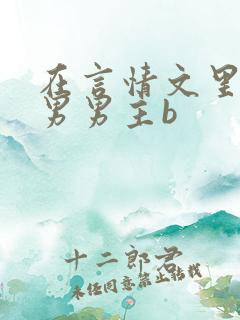 在言情文里
男男主b
十二郎君
未经同意禁止转载